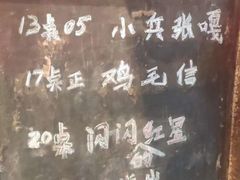 13桌05 小兵张嘎
17桌正 鸡毛信
20桌 闪闪红星